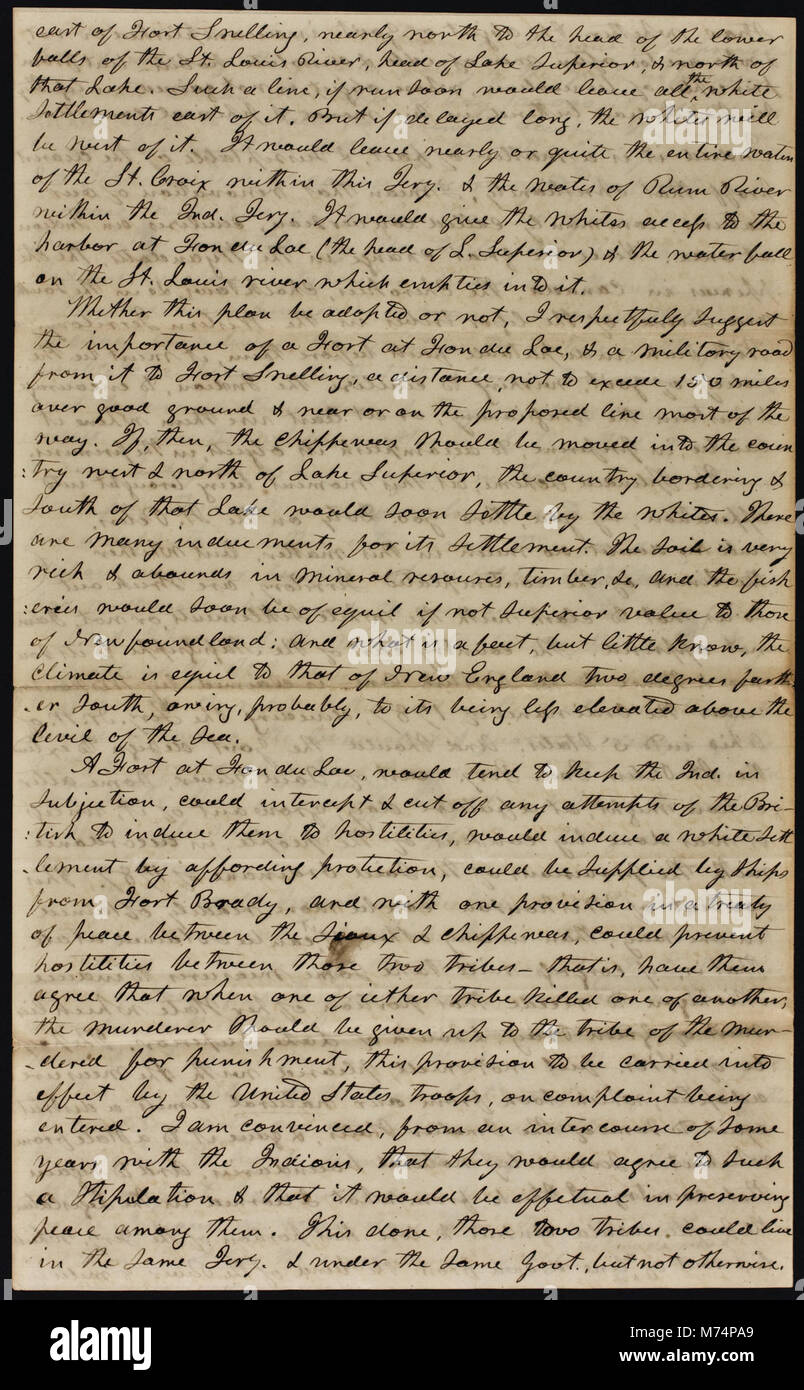 east of Fort Snelling, nearly north to the head of the lower
falls of the St. Louis River, head of Lake Superior, & north of
that Lake. Such a line, if run soon would leave all the white
settlements east of it. But if delayed long, the whites will
be west of it. It would leave nearly or quite the entire waters
of the St. Croix within this Tery. & the waters of Rum River
within the Ind. Tery. It would give the whites access to the
harbor at Fon du Lac (the head of L. Superior) & the water fall
on the St. Louis river which empties into it.
Whether this plan be adopted or not, I respectfuly suggest
the importance of a Fort at Fon du Lac, & a military road
from it to Fort Snelling, a distance not to excede 150 miles
over good ground & near or on the proposed line most of the
way. If, then, the Chippewas should be moved into the coun
:try west & north of Lake Superior, the country bordering &
south of that Lake would soon settle by the whites. There
are many inducments for its settlement. The soil is very
rich & abounds in mineral resources, timber, &c, and the fish
:eries would soon be of equil if not superior value to those
of Newfoundland: and what is a fact, but little know, the
climate is equil to that of New England two degrees farth
-er south, owing, probably, to its being less elevated above the
levil of the sea.
A Fort at Fon du Lac, would tend to keep the Ind. in
subjection, could intercept & cut off any attempts of the Bri-
:tish to induce them to hostilities, would induce a white settl
-lement by affording protection, could be supplied by ships
from Fort Brady, and with one provision in a treaty
of peace between the Sioux & Chippewas, could prevent
hostilities between those two tribes - that is, have them
agree that when one of either tribe killed one of another,
the murderer should be given up to the tribe of the mur-
-dered for punishment, this provision to be carried into
effect by the United States troops, on complaint being
entered. I am convinced, from an intercourse of some
years with the Indians, that they would agree to such
a stipulation & that it would be effectual in preserving
peace among them. This done, those two tribes could live
in the same Tery. & under the same Govt., but not otherwise.
alamy
alamy
Image ID: M74PA9
www.alamy.com